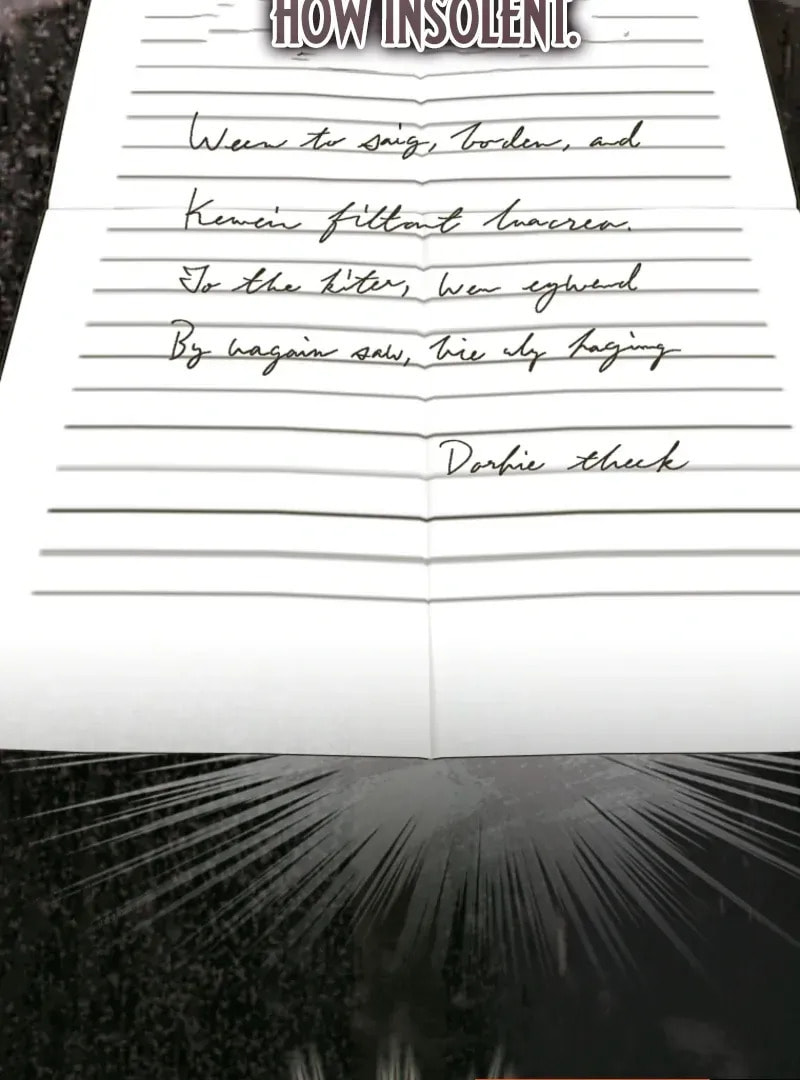 HOW INSOLENT.
Ween to saig, boden, and
Kewein filtont luacrea.
To the kiter, wen eghend
By hagain saw, bie uly haging
Dorhie theck